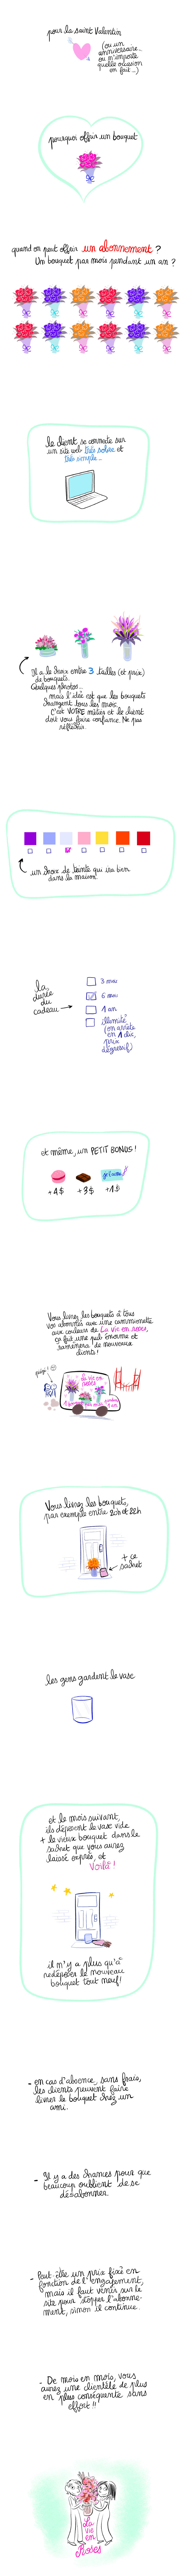 pour la saint Valentin
(ou un
anniversaire...
ou n'importe
quelle occasion
en fait...)
pourquoi offrir un bouquet
quand on peut offrir un abonnement ?
Un bouquet par mois pendant un an ?
le client se connecte sur
un site web très sobre et
très simple...
Il a le choix entre 3 tailles (et prix)
de bouquets.
Quelques photos...
mais l'idée est que les bouquets
changent tous les mois.
C'est VOTRE métier et le client
doit vous faire confiance. Ne pas
réfléchir.
un choix de teinte qui ira bien
dans la maison!
La
durée
du
cadeau
3 mois
6 mois
1 an
illimité
(on arrête
en 1 clic,
prix
dégressif)
et même, un PETIT BONUS!
je t'aime
+4$
+3$
+1$
Vous livrez les bouquets à tous
vos abonnés avec une camionnette
aux couleurs de La Vie en roses,
ça fait une pub énorme et
ramènera de nouveaux
clients!
La vie en
roses
Vous livrez les bouquets,
par exemple entre 20h et 22h
+ ce
sachet
les gens gardent le vase
et le mois suivant,
ils déposent le vase vide
+ le vieux bouquet dans le
sachet que vous aurez
laissé exprès, et
Voilà!
il n'y a plus qu'à
redéposer le nouveau
bouquet tout neuf!
- en cas d'absence, sans frais,
les clients peuvent faire
livrer le bouquet chez un
ami.
- Il y a des chances pour que
beaucoup oublient de se
désabonner.
- Peut-être un prix fixé en
fonction de l'engagement,
mais il faut venir sur le
site pour stopper l'abonne-
ment, sinon il continue.
- De mois en mois, vous
aurez une clientèle de plus
en plus conséquente sans
effort!!
La
vie
en
Roses